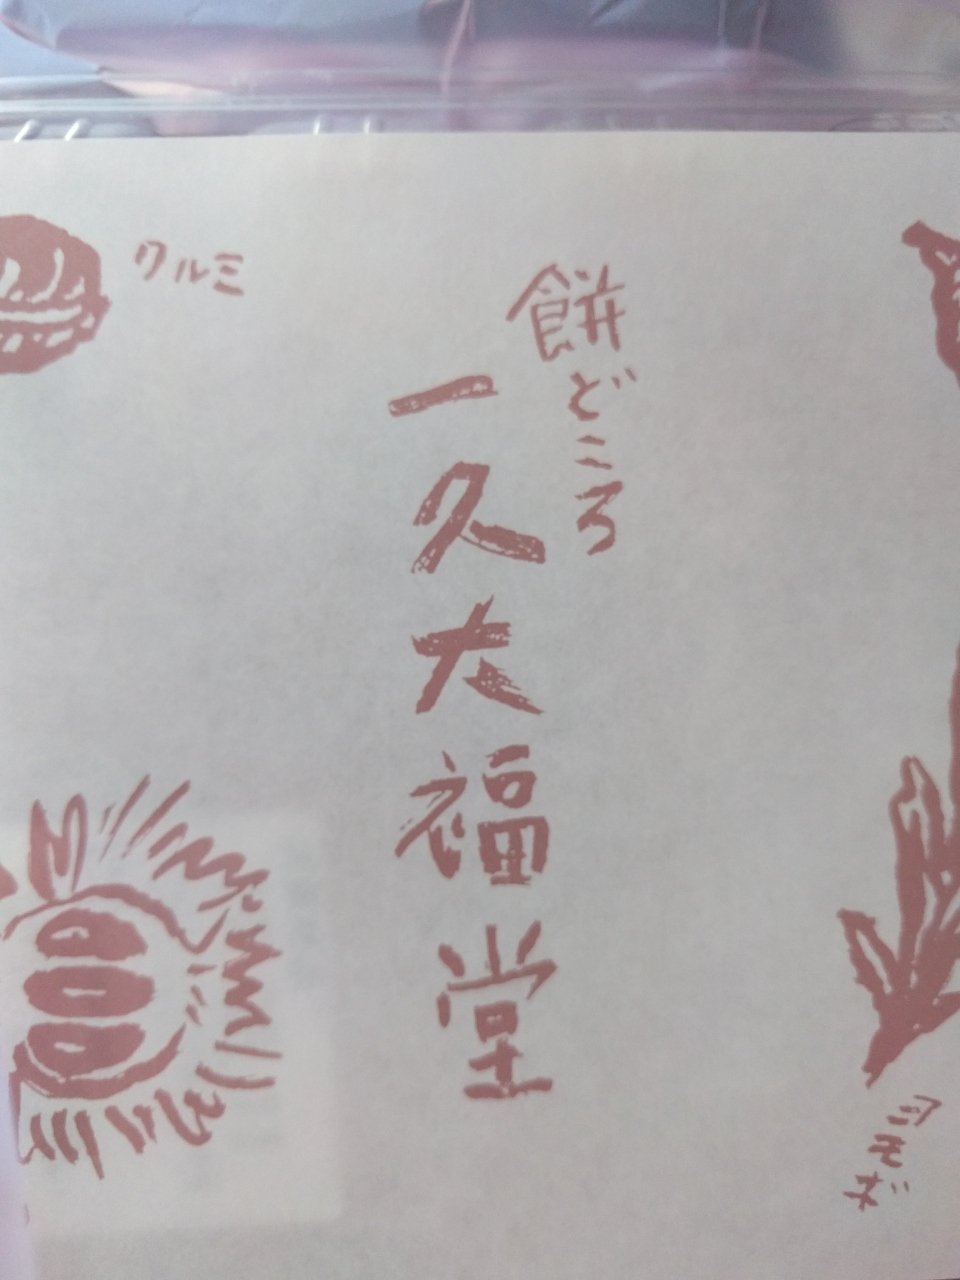 餅どころ
一久大福堂
クルミ
ヨモギ